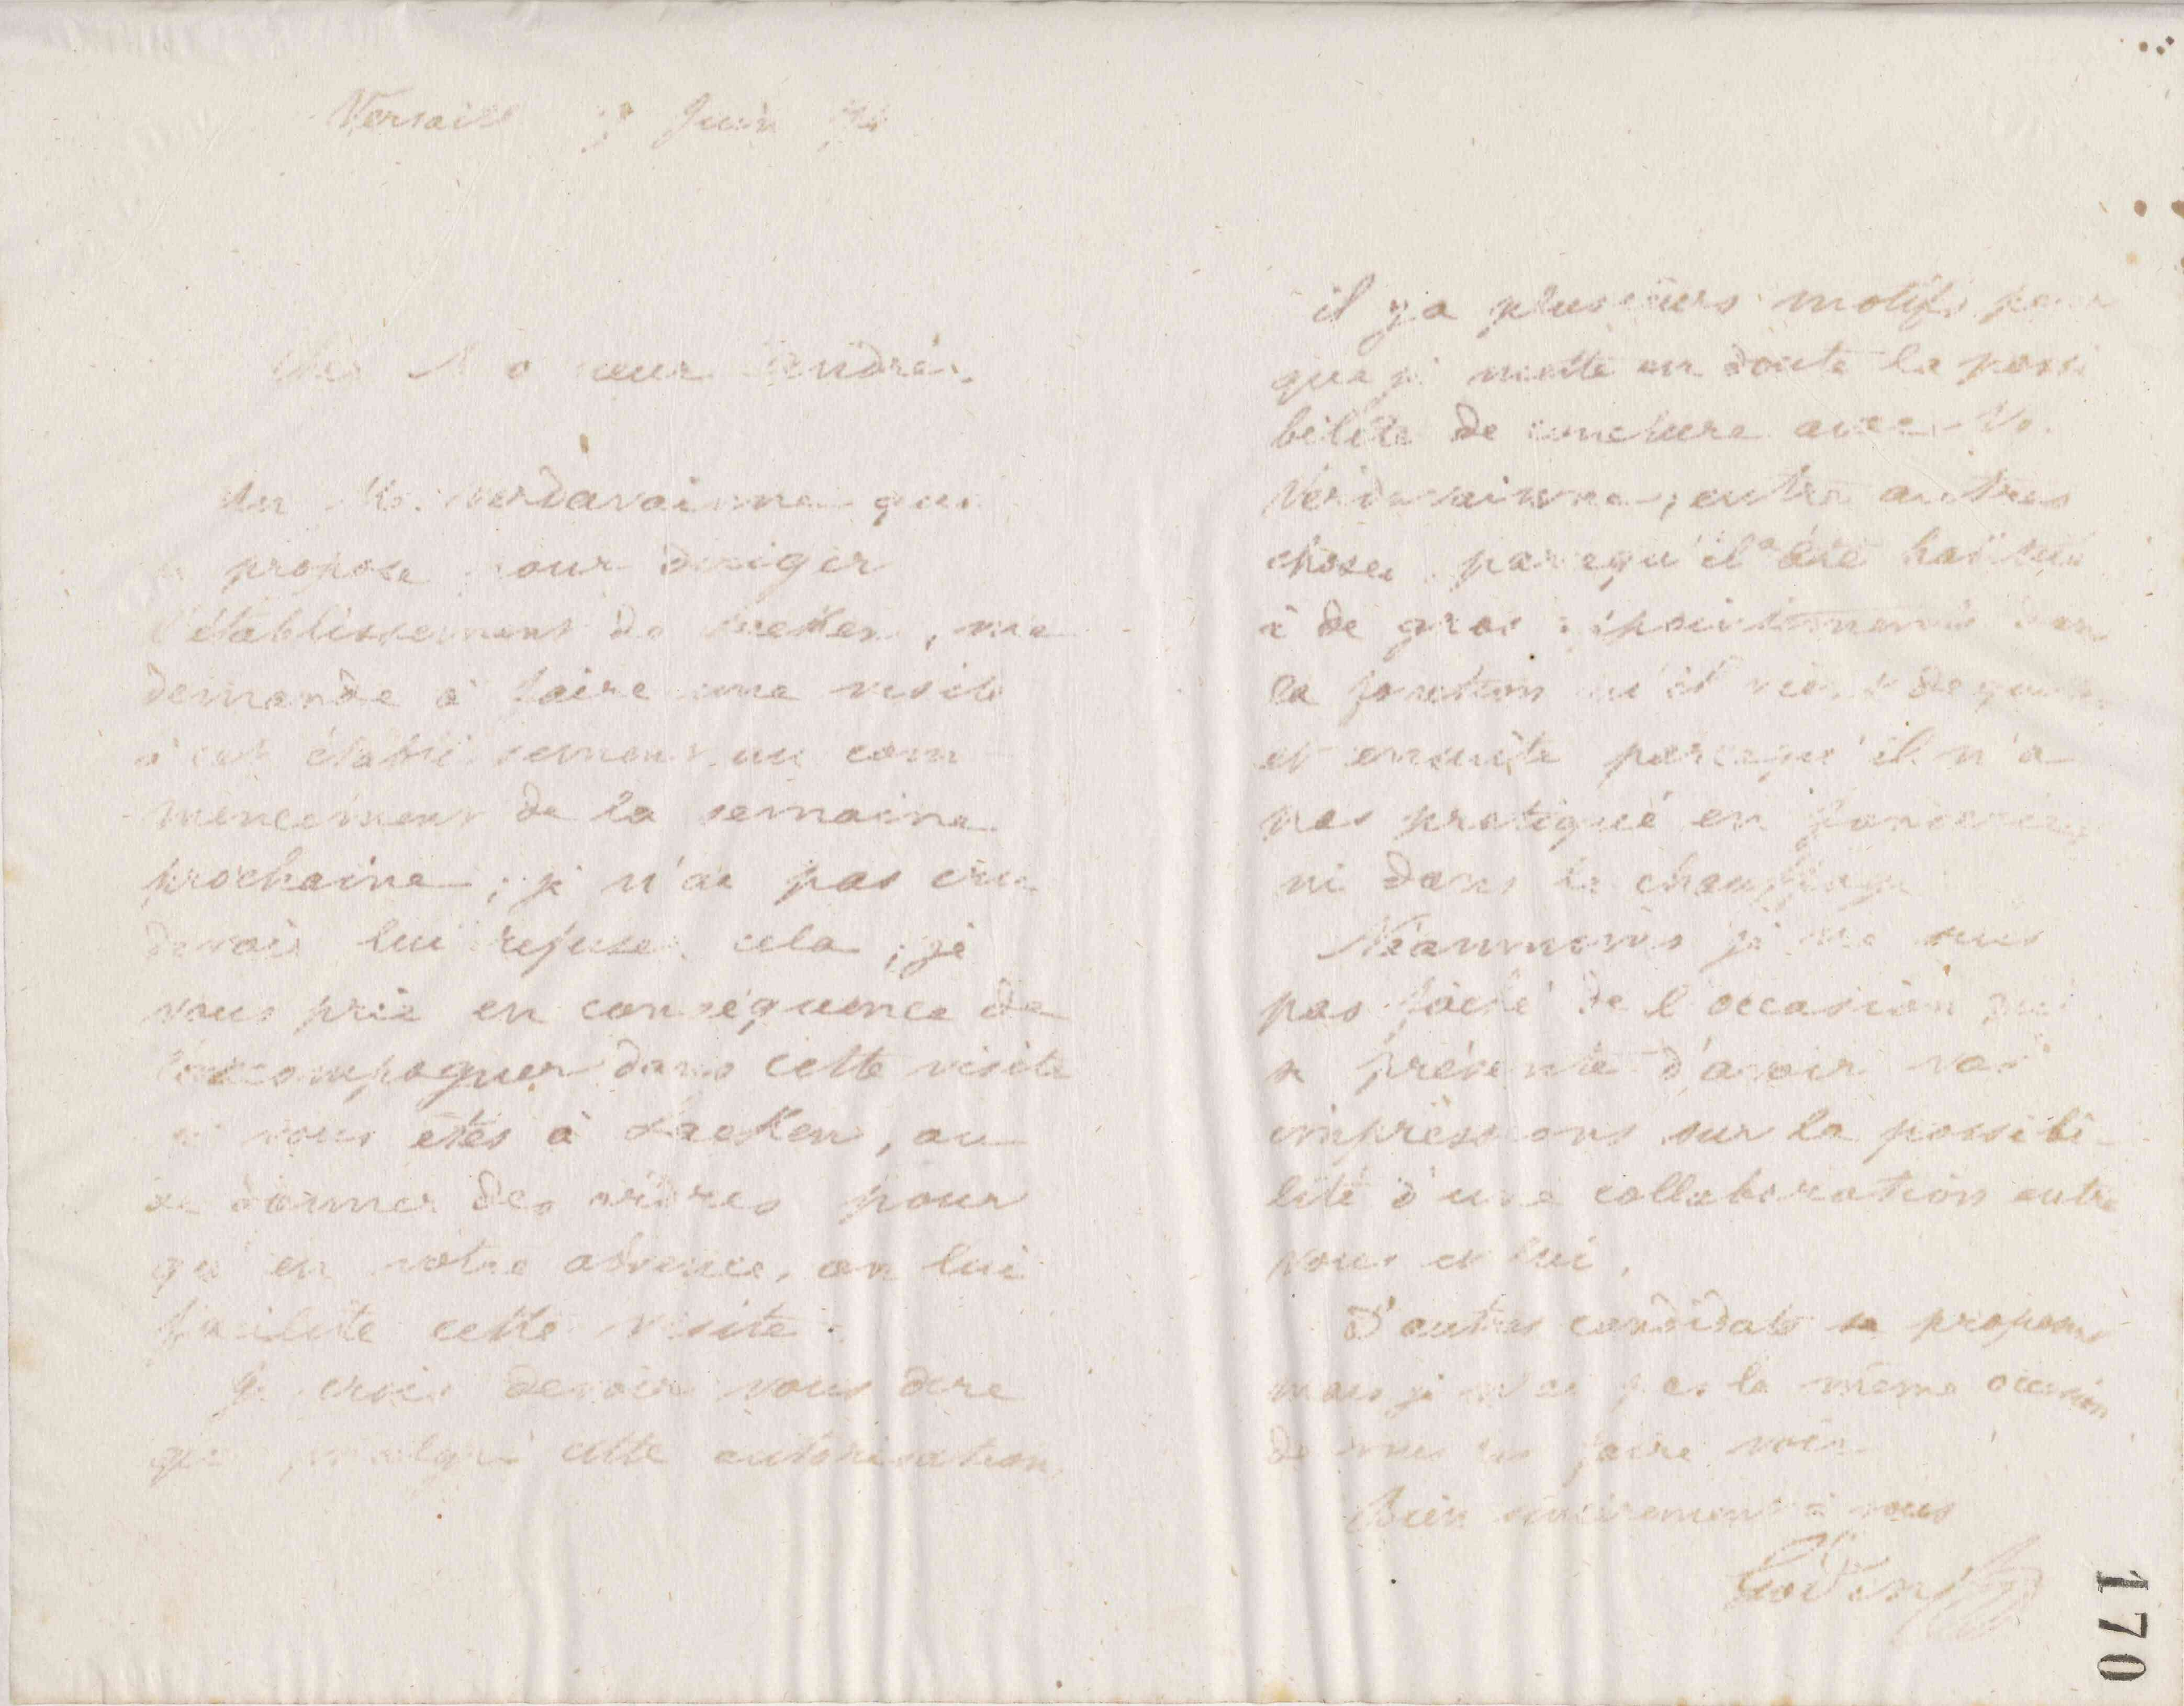 Versailles Juin
Cher Monsieur André,
Un Mr. Verdavainne qui
se propose pour diriger
l'établissement de Laeken, me
demande à faire une visite
à cet établissement au com-
mencement de la semaine
prochaine ; je n'ai pas cru
devoir lui refuser cela ; je
vous prie en conséquence de
l'accompagner dans cette visite
si vous êtes à Laeken, ou
de donner des ordres pour
qu'en votre absence, on lui
facilite cette visite.
Je crois devoir vous dire
que malgré cette autorisation
il y a plusieurs motifs pour
que je mette en doute la possi
bilité de conclure avec Mr.
Verdavainne, entre autres
choses parcequ'il a été habitué
à de gros appointements dans
la fonction qu'il vient de quitter
et ensuite parcequ'il n'a
pas pratiqué en fonderie
ni dans le chauffage
Néanmoins je ne suis
pas fâché de l'occasion qui
se présente d'avoir vos
impressions sur la possibi-
lité d'une collaboration entre
vous et lui.
D'autres candidats se proposent
mais je n'ai pas la même occasion
de vous les faire voir.
Bien sincèrement à vous
Godin
170